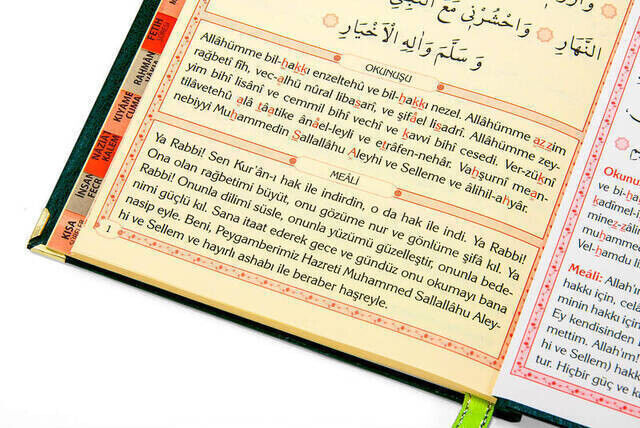 النَّهَارِ ۞ وَاحْشُرْنِي مَعَ النَّبِيِّ
وَ سَلَّمَ وَاٰلِهِ الْاَخْيَارِ
OKUNUŞU
Allâhümme bil-hakkı enzeltehû ve bil-hakkı nezel. Allâhümme azzim
rağbetî fîh, vec-alhü nûral libasarî, ve şifâel lisadrî. Allâhümme zey-
yim bihî lisânî ve cemmil bihî vechî ve kavvi bihî cesedî. Ver-züknî
tilâvetehû alâ tâatike ânâel-leyli ve etrâfen-nehâr. Vahşurnî mean-
nebiyyi Muhammedin Sallallâhu Aleyhi ve Selleme ve âlihil-ahyâr.
MEÂLİ
Ya Rabbi! Sen Kur'ân-ı hak ile indirdin, o da hak ile indi. Ya Rabbi!
Ona olan rağbetimi büyüt, onu gözüme nur ve gönlüme şifâ kıl. Ya
Rabbi! Onunla dilimi süsle, onunla yüzümü güzelleştir, onunla bede-
nimi güçlü kıl. Sana itaat ederek gece ve gündüz onu okumayı bana
nasip eyle. Beni, Peygamberimiz Hazreti Muhammed Sallallâhu Aley-
hi ve Sellem ve hayırlı ashabı ile beraber haşreyle.
1
FETİH
RAHMÂN
KIYÂME
CUMA
NÂZİAT
KALEM
İNSAN
FECR
KISA
Okunu
ve bi-ha
kadîmel
minez-zâl
Muham
Vel-hamdu l
Meâli: Allah'ı
hakkı için, cel
minin hakkı içi
Ey kendisinden
mettim. Allah'ım!
hi ve Sellem) hakk
tur. Hiçbir güç ve k